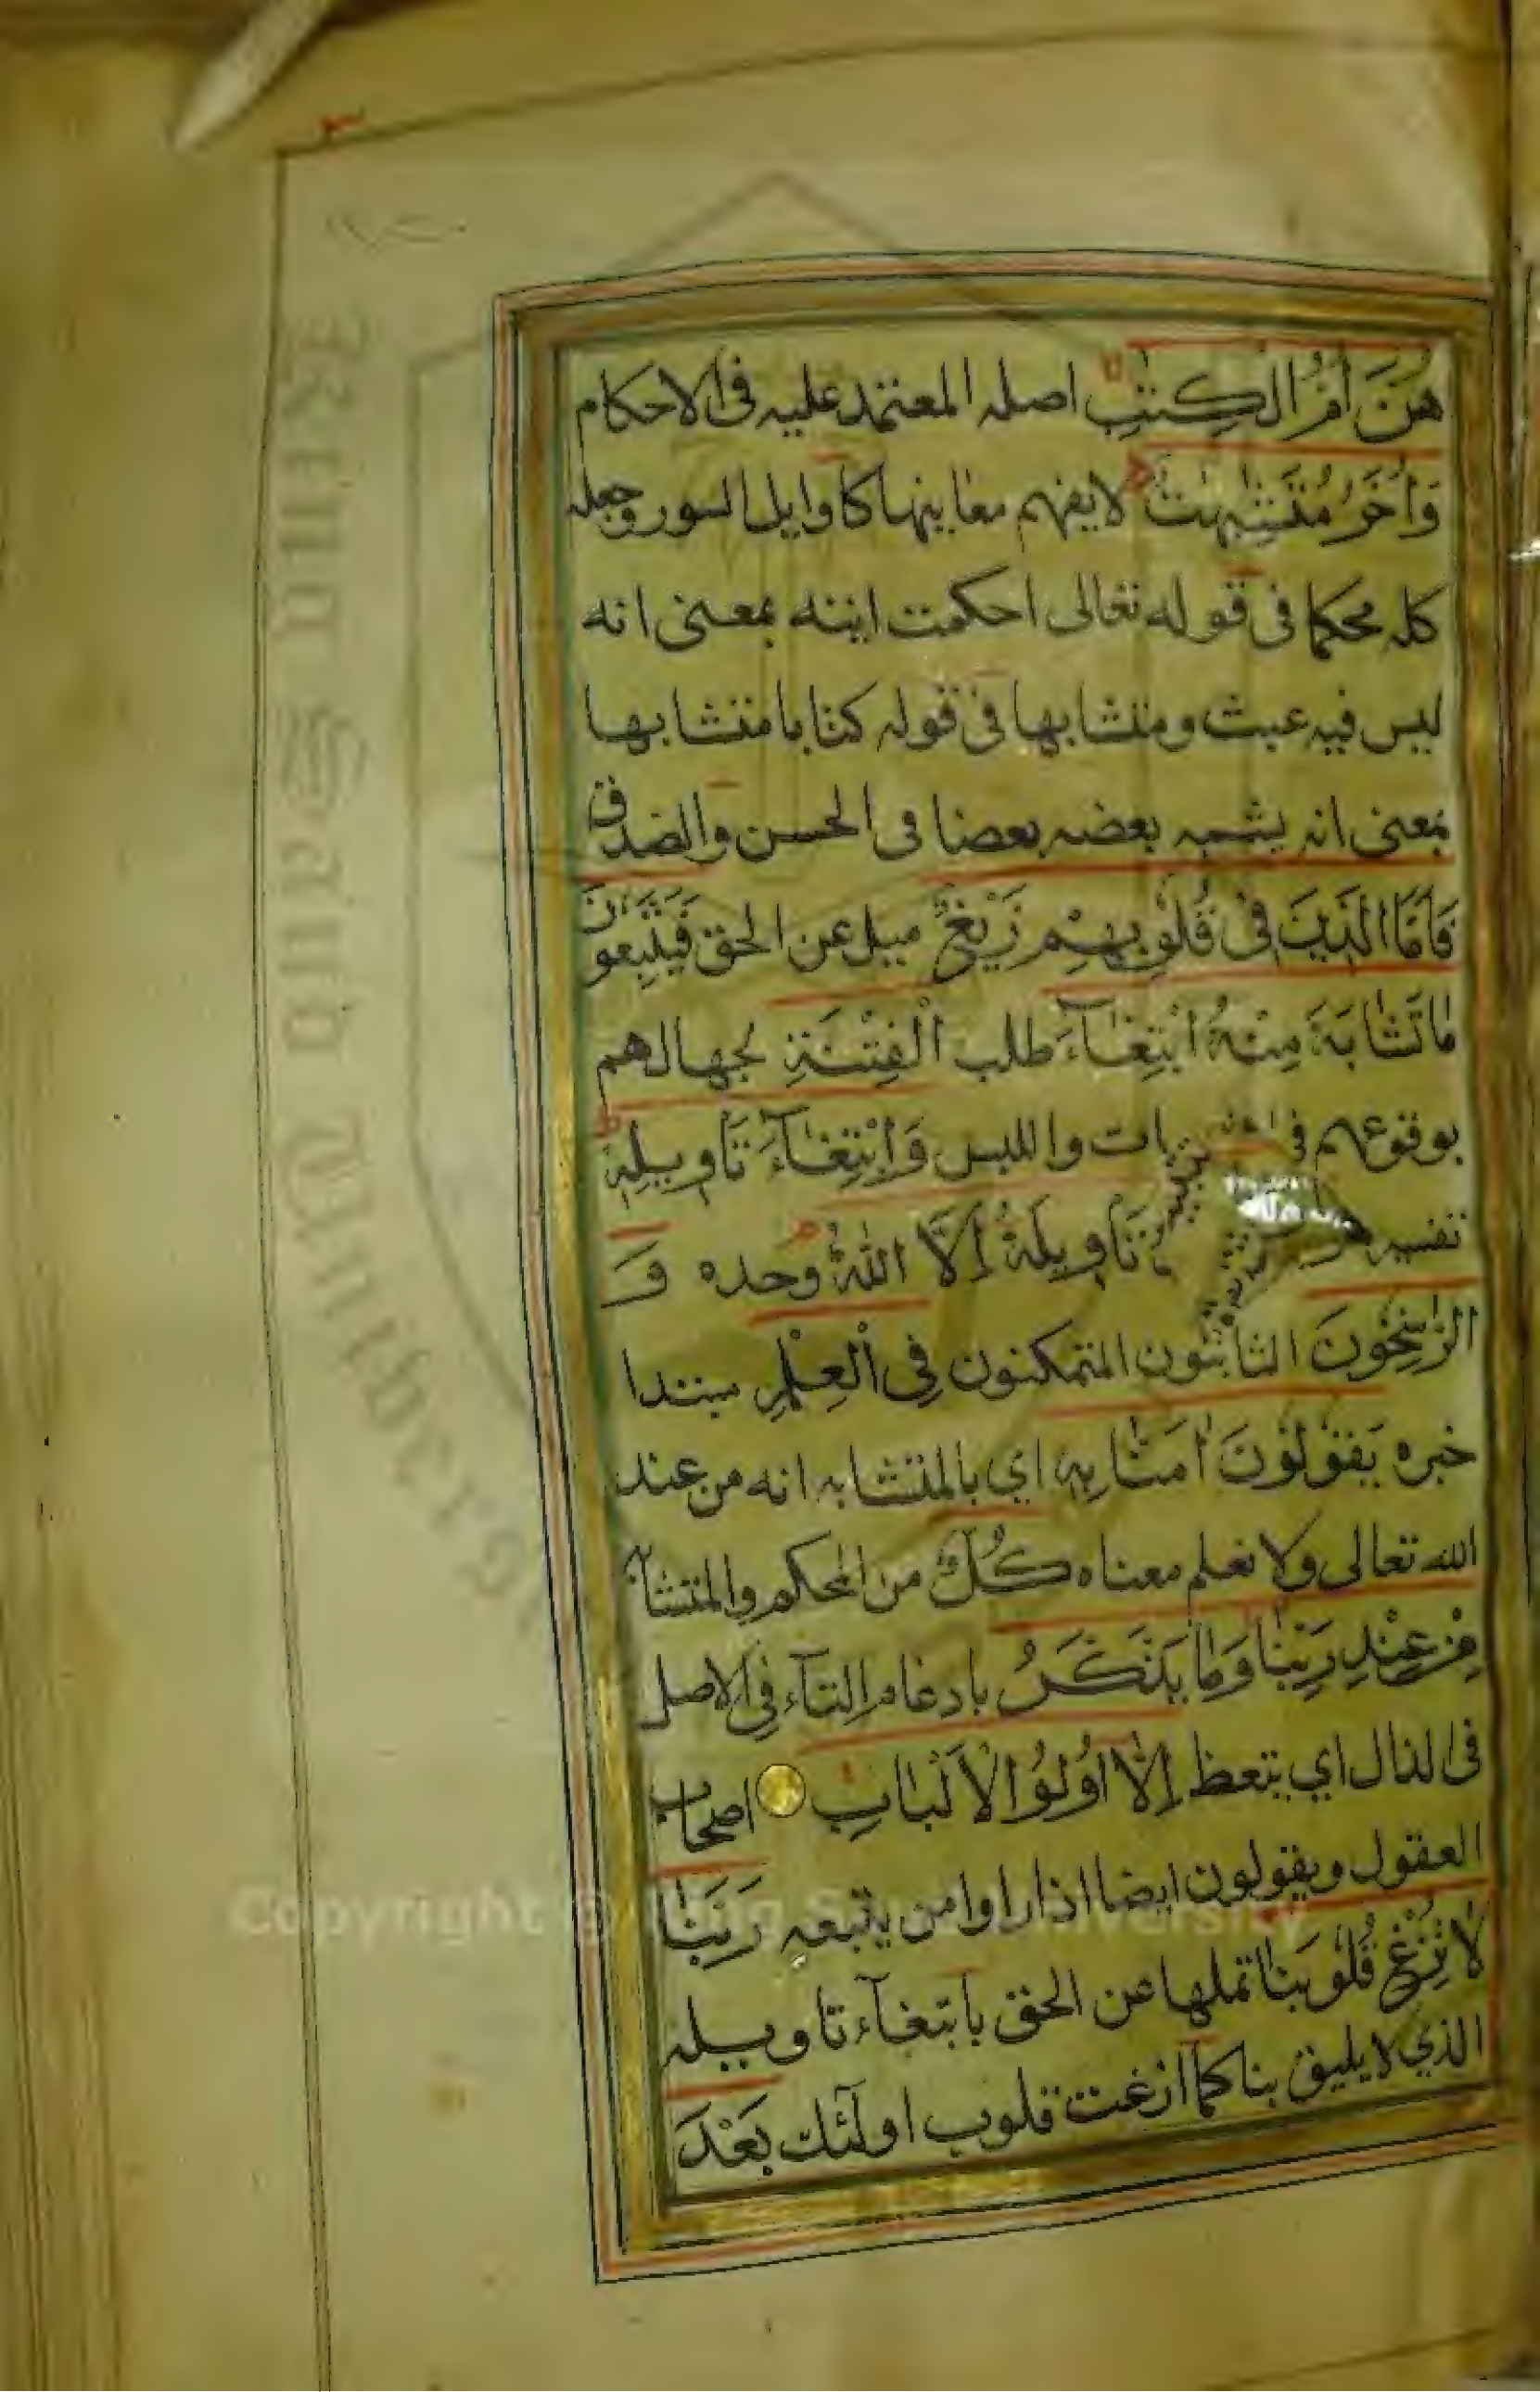 هُنَّ أُمُّ الْكِتٰبِ اصله المعتمد عليه فى الاحكام
وَأُخَرُ مُتَشٰبِهٰتٌ لا يفهم معانيها كاوايل السور وجعله
كله محكما فى قوله تعالى احكمت ايته بمعنى انه
ليس فيه عبث ومتشابها فى قوله كتابا متشابها
بمعنى انه يشبه بعضه بعضا فى الحسن والصدق
فَأَمَّا الَّذِينَ فِى قُلُوبِهِمْ زَيْغٌ ميل عن الحق فَيَتَّبِعُونَ
مَا تَشَابَهَ مِنْهُ ابْتِغَآءَ طلب الْفِتْنَةِ لجهالهم
بوقوعهم فى ات واللبس وَابْتِغَآءَ تَأْوِيلِهِ
تفسيره تَأْوِيلَهُ إِلَّا اللّٰهُ وحده وَ
الرَّاسِخُونَ الثابتون المتمكنون فِى الْعِلْمِ مبتدا
خبره يَقُولُونَ اٰمَنَّا بِهِ اي بالمتشابه انه من عند
الله تعالى ولا نعلم معناه كُلٌّ من المحكم والمتشابه
مِنْ عِنْدِ رَبِّنَا وَمَا يَذَّكَّرُ بادغام التآء فى الاصل
فى الذال اي يتعظ إِلَّا أُولُوا الْأَلْبَابِ اصحاب
العقول ويقولون ايضا اذا راوا من يتبعه رَبَّنَا
لَا تُزِغْ قُلُوبَنَا تملها عن الحق بابتغآء تاويله
الذي لا يليق بنا كما ازغت قلوب اولئك بَعْدَ
King Saud University
Copyright © King Saud University